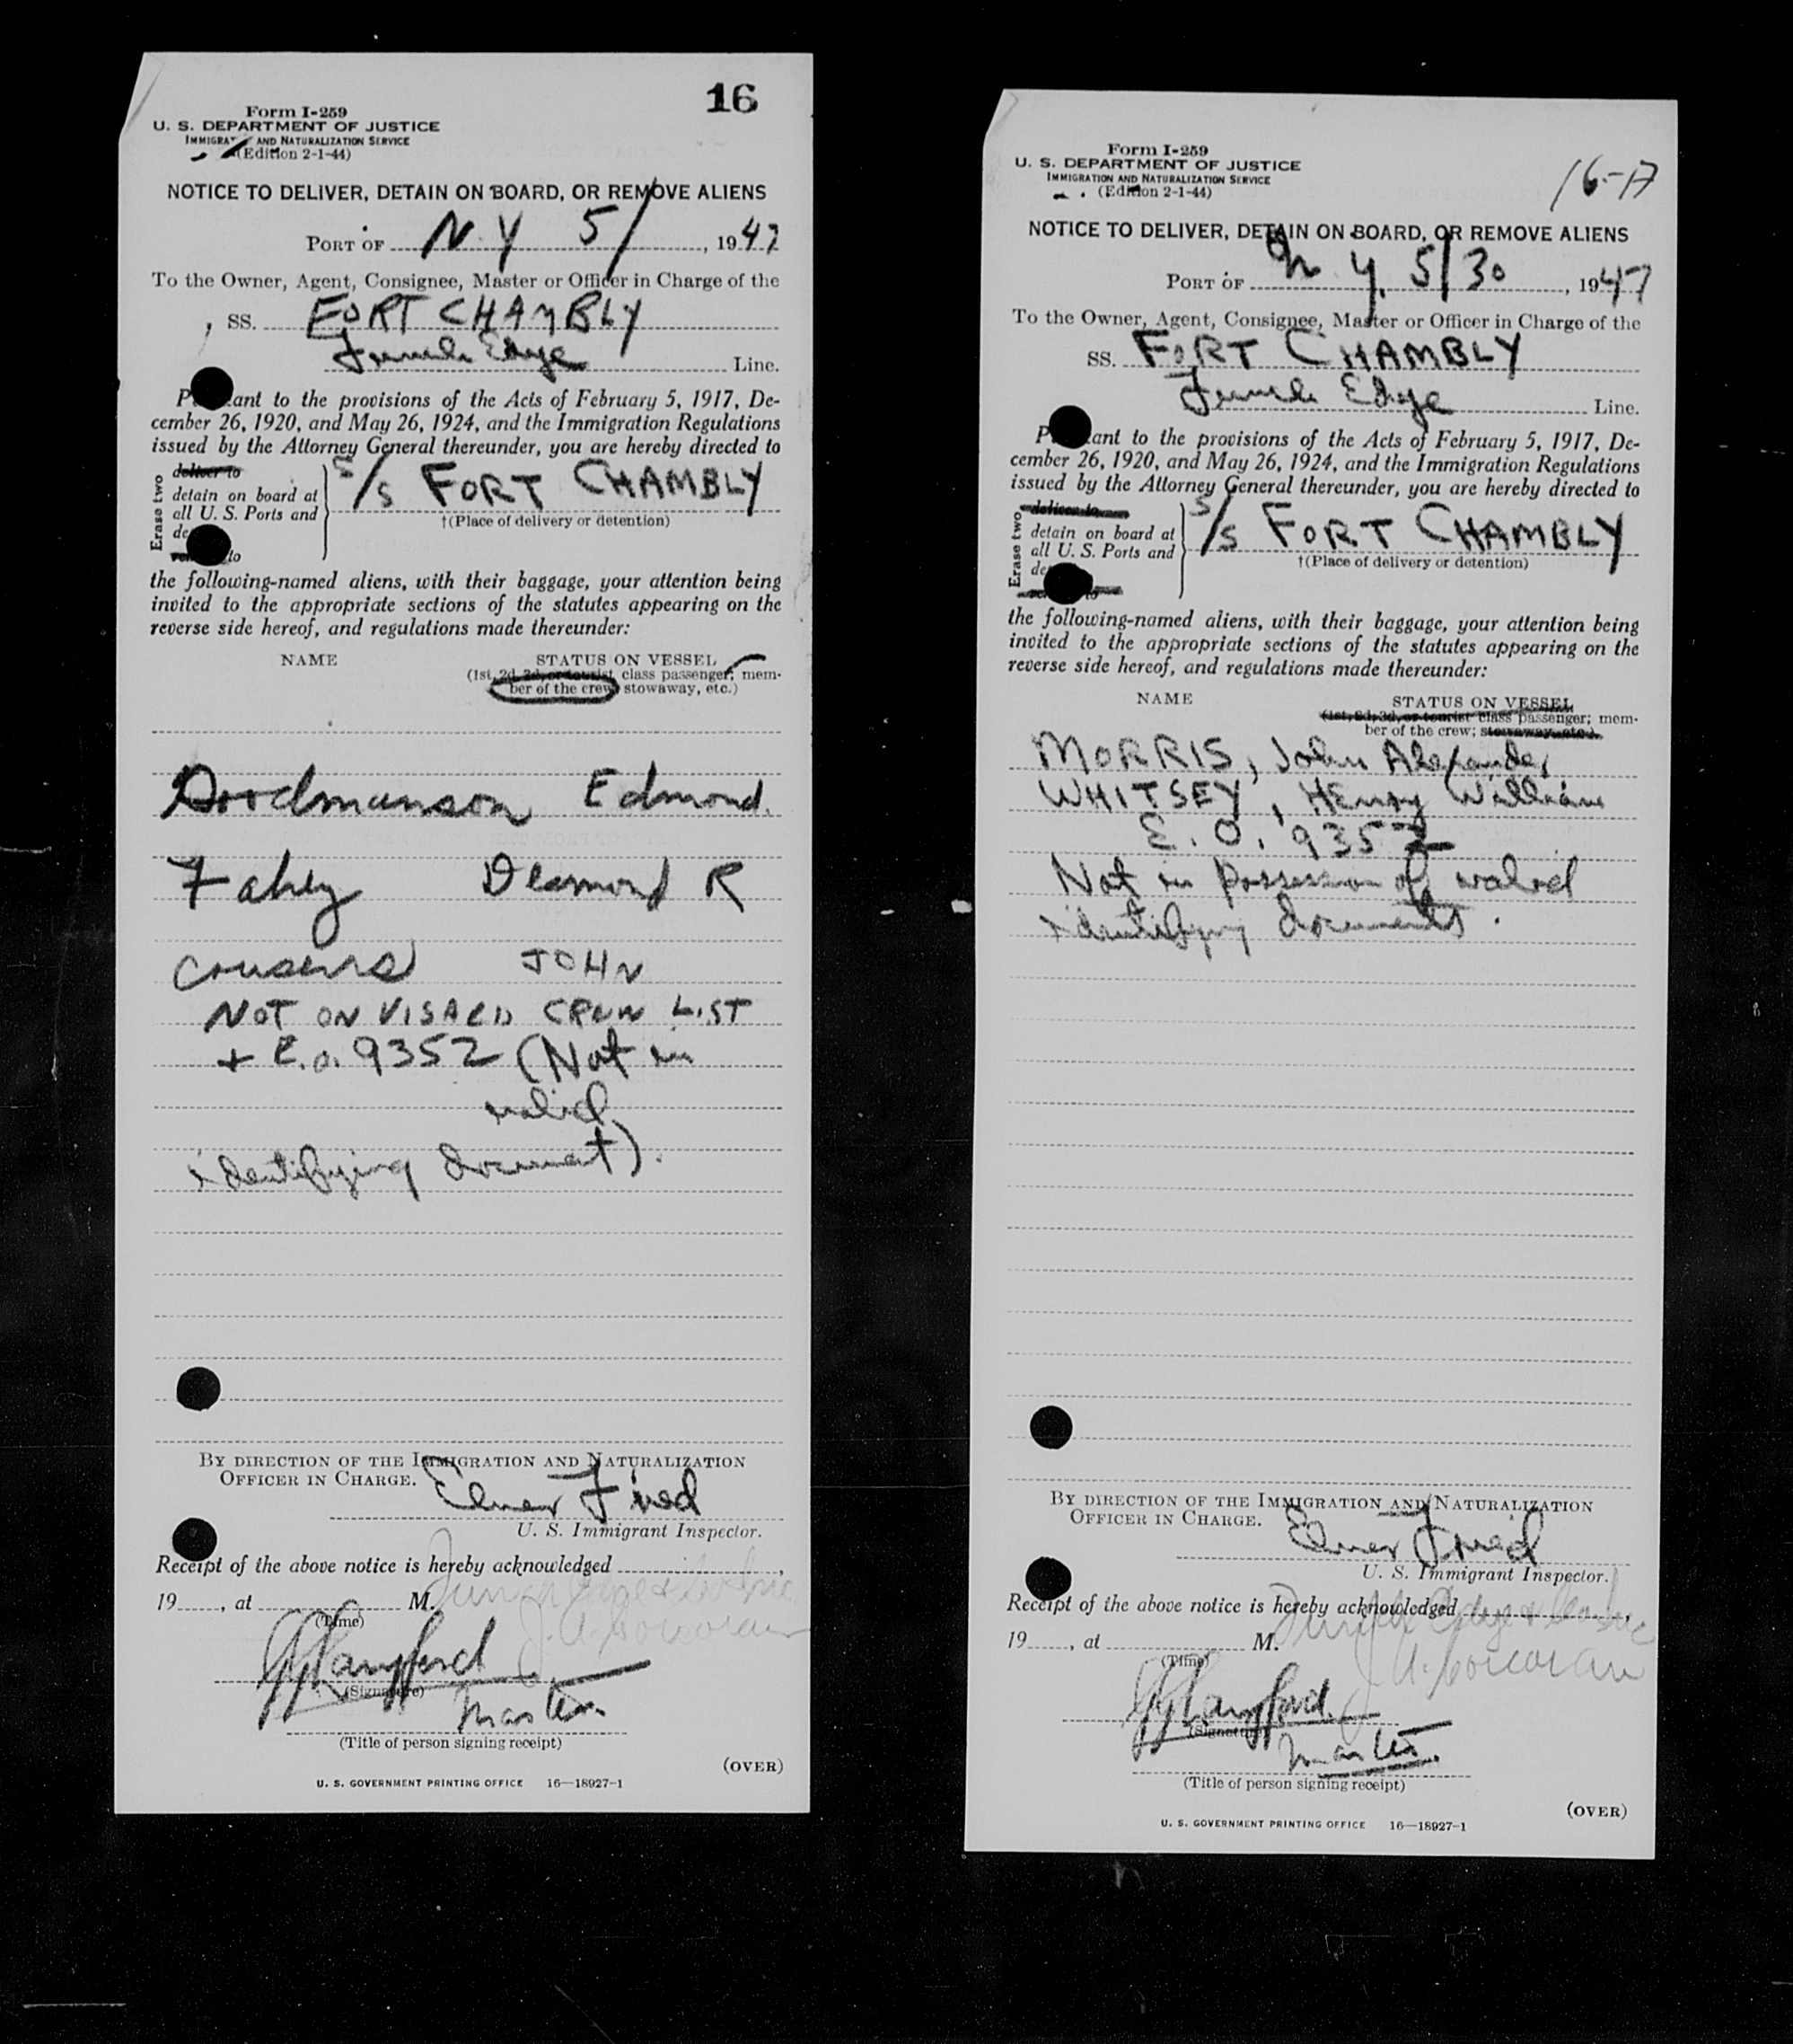 16
Form I-259
U. S. DEPARTMENT OF JUSTICE
IMMIGRA AND NATURALIZATION SERVICE
(Edition 2-1-44)
NOTICE TO DELIVER, DETAIN ON BOARD, OR REMOVE ALIENS
PORT OF N. Y 5/ , 1947
To the Owner, Agent, Consignee, Master or Officer in Charge of the
SS. FORT CHAMBLY
Edye Line.
P ant to the provisions of the Acts of February 5, 1917, De-
cember 26, 1920, and May 26, 1924, and the Immigration Regulations
issued by the Attorney General thereunder, you are hereby directed to
Erase two
deliver to
detain on board at
all U. S. Ports and
de
to
S/S FORT CHAMBLY
†(Place of delivery or detention)
the following-named aliens, with their baggage, your attention being
invited to the appropriate sections of the statutes appearing on the
reverse side hereof, and regulations made thereunder:
NAME STATUS ON VESSEL
(1st, 2d, 3d, or tourist class passenger; mem-
ber of the crew; stowaway, etc.)
Edmond.
Fahey Desmond R
JOHN
NOT ON VISAED CREW LIST
+ E.O. 9352 (Not in
valid
identifying document).
BY DIRECTION OF THE IMMIGRATION AND NATURALIZATION
OFFICER IN CHARGE.
Elmer Fried
U. S. Immigrant Inspector.
Receipt of the above notice is hereby acknowledged ,
19 , at M.
(Time)
J. A. Corcoran
Langford
(Signature)
Master.
(Title of person signing receipt)
(OVER)
U. S. GOVERNMENT PRINTING OFFICE 16—18927-1
16-17
Form I-259
U. S. DEPARTMENT OF JUSTICE
IMMIGRATION AND NATURALIZATION SERVICE
(Edition 2-1-44)
NOTICE TO DELIVER, DETAIN ON BOARD, OR REMOVE ALIENS
PORT OF N. Y. 5/30 , 1947
To the Owner, Agent, Consignee, Master or Officer in Charge of the
SS. FORT CHAMBLY
Edye Line.
P ant to the provisions of the Acts of February 5, 1917, De-
cember 26, 1920, and May 26, 1924, and the Immigration Regulations
issued by the Attorney General thereunder, you are hereby directed to
Erase two
deliver to
detain on board at
all U. S. Ports and
de
to
S/S FORT CHAMBLY
†(Place of delivery or detention)
the following-named aliens, with their baggage, your attention being
invited to the appropriate sections of the statutes appearing on the
reverse side hereof, and regulations made thereunder:
NAME STATUS ON VESSEL
(1st, 2d, 3d, or tourist class passenger; mem-
ber of the crew; stowaway, etc.)
MORRIS, John Alexander
WHITSEY, Henry William
E. O. 9352
Not in possession of valid
identifying documents.
BY DIRECTION OF THE IMMIGRATION AND NATURALIZATION
OFFICER IN CHARGE.
Elmer Fried
U. S. Immigrant Inspector.
Receipt of the above notice is hereby acknowledged ,
19 , at M.
(Time)
J. A. Corcoran
Langford.
(Signature)
Master.
(Title of person signing receipt)
(OVER)
U. S. GOVERNMENT PRINTING OFFICE 16—18927-1